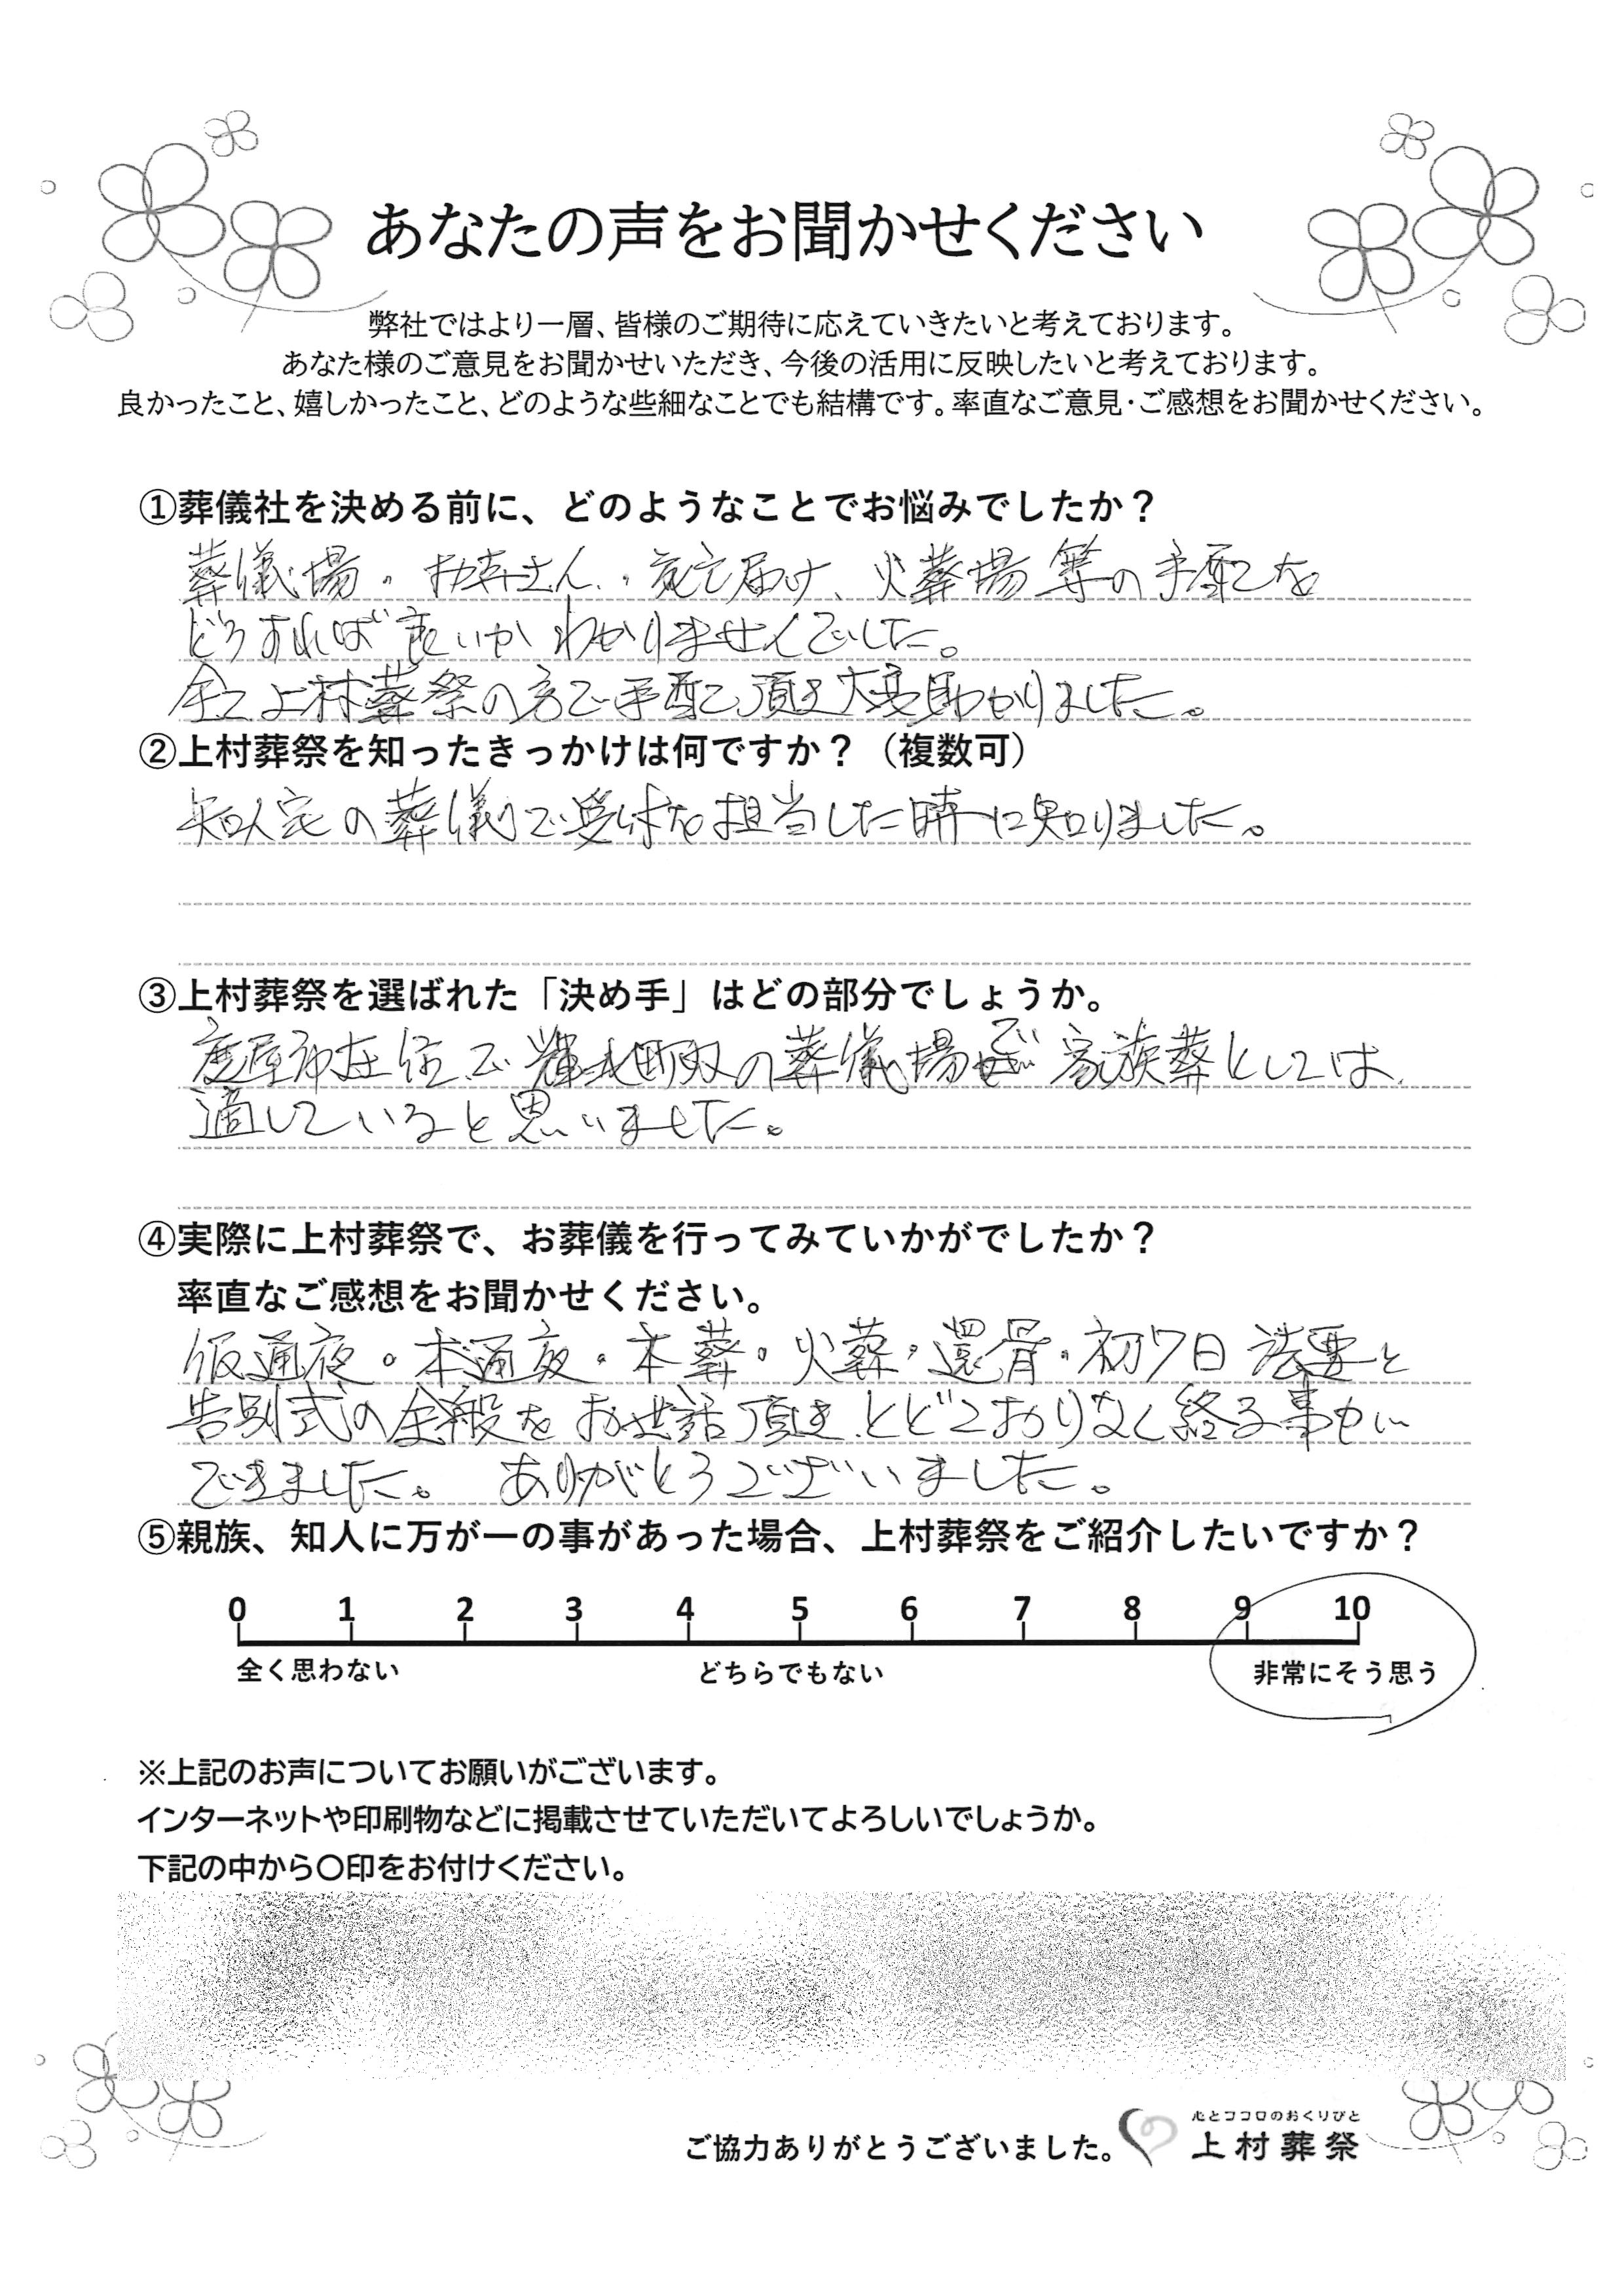 あなたの声をお聞かせください
弊社ではより一層、皆様のご期待に応えていきたいと考えております。
あなた様のご意見をお聞かせいただき、今後の活用に反映したいと考えております。
良かったこと、嬉しかったこと、どのような些細なことでも結構です。率直なご意見・ご感想をお聞かせください。
①葬儀社を決める前に、どのようなことでお悩みでしたか？
葬儀場・お寺さん・死亡届け、火葬場等の手配を
どうすれば良いかわかりませんでした。
全て上村葬祭の方で手配て頂き大変助かりました。
②上村葬祭を知ったきっかけは何ですか？（複数可）
知人宅の葬儀で受付を担当した時に知りました。
③上村葬祭を選ばれた「決め手」はどの部分でしょうか。
鹿屋市在住で輝北町の葬儀場が家族葬としては
適していると思いました。
④実際に上村葬祭で、お葬儀を行ってみていかがでしたか？
率直なご感想をお聞かせください。
仮通夜・本通夜・本葬・火葬・還骨・初7日法要と
告別式の全般をお世話頂きとどこおりなく終る事が
できました。ありがとうございました。
⑤親族、知人に万が一の事があった場合、上村葬祭をご紹介したいですか？
0 1 2 3 4 5 6 7 8 9 10
全く思わない どちらでもない 非常にそう思う
※上記のお声についてお願いがございます。
インターネットや印刷物などに掲載させていただいてよろしいでしょうか。
下記の中から〇印をお付けください。
心とココロのおくりびと
ご協力ありがとうございました。 上村葬祭